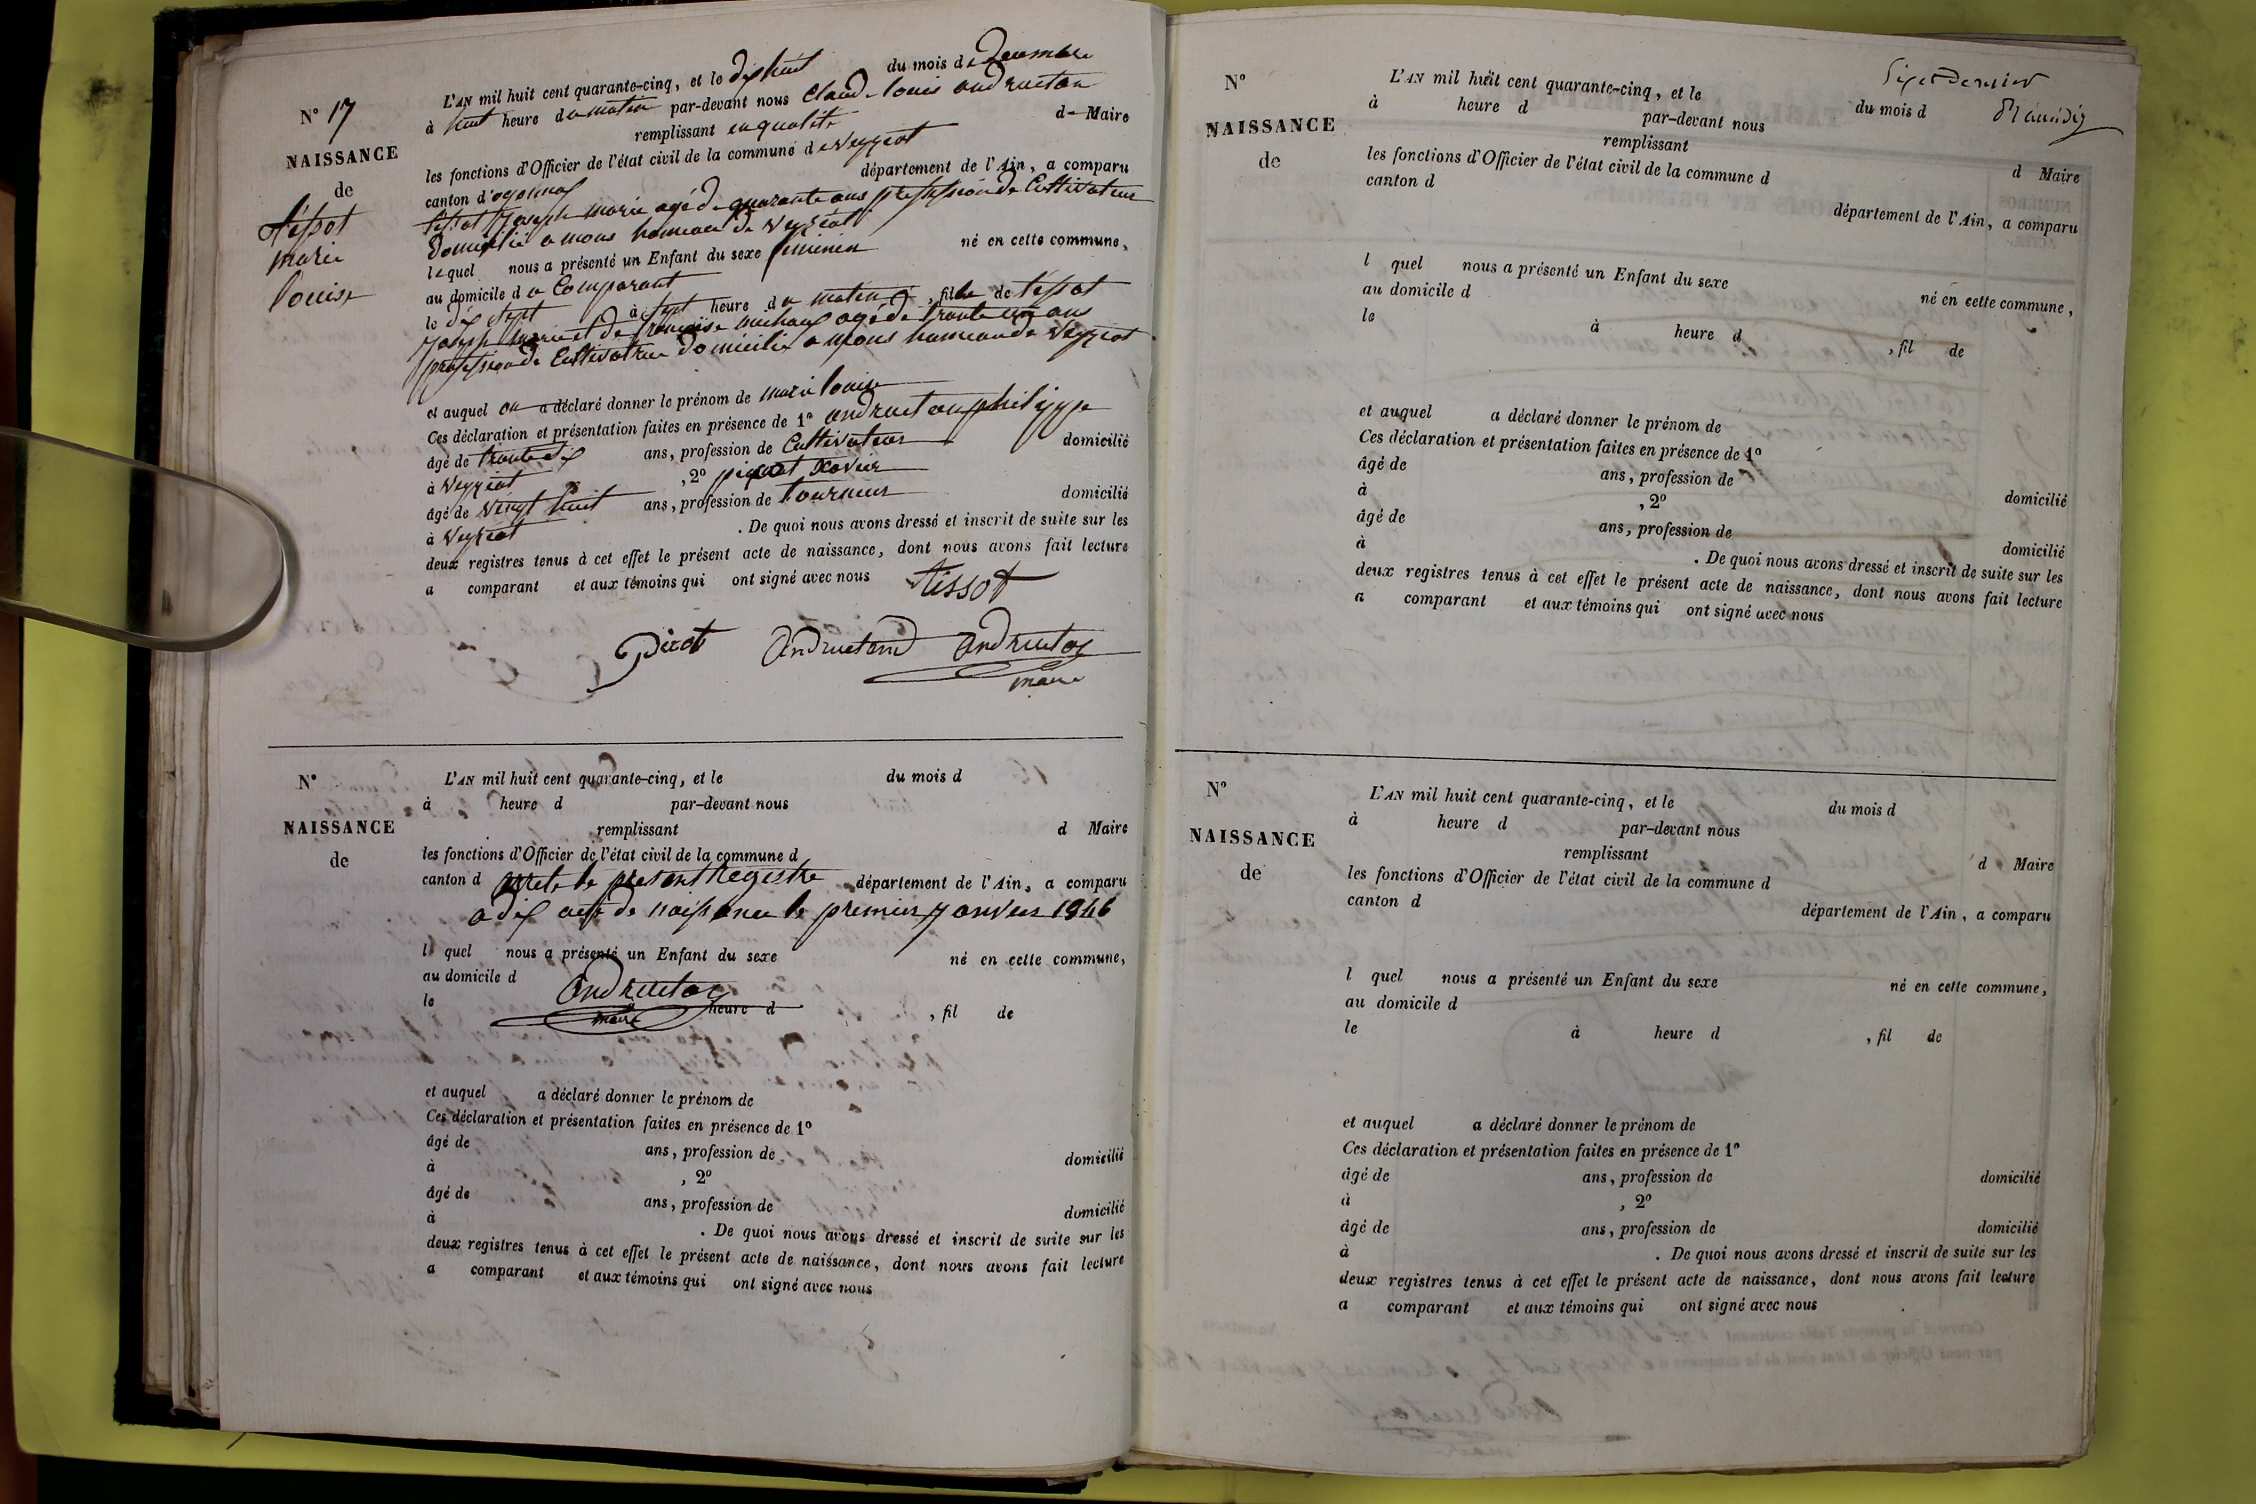 N° 17
NAISSANCE
de
tissot
marie
louise
L'AN mil huit cent quarante-cinq, et le dix huit du mois de Decembre
à huit heure du matin par-devant nous Claude louis andrueton
remplissant en qualité de Maire
les fonctions d'Officier de l'état civil de la commune de Veyziat
canton d'oyonnax département de l'Ain, a comparu
tissot Joseph marie agé de quarante ans profession de Cultivateur
domicilié a mons hameau de Veyziat
lequel nous a présenté un Enfant du sexe feminin né en cette commune,
au domicile du Comparant
le dix sept à sept heure du matin, fille de tissot
Joseph marie et de françoise michaux agé de trante un ans
profession de Cultivatrice domicilié a mons hameau de Veyziat
et auquel on a déclaré donner le prénom de marie louise
Ces déclaration et présentation faites en présence de 1° andrueton philippe
âgé de trante dix ans, profession de Cultivateur domicilié
à Veyziat, 2° picot xavier
âgé de vingt huit ans, profession de tourneur domicilié
à Veyziat. De quoi nous avons dressé et inscrit de suite sur les
deux registres tenus à cet effet le présent acte de naissance, dont nous avons fait lecture
a comparant et aux témoins qui ont signé avec nous tissot
Picot Andrueton Andrueton
maire
N°
NAISSANCE
de
L'AN mil huit cent quarante-cinq, et le du mois d
à heure d par-devant nous
remplissant d Maire
les fonctions d'Officier de l'état civil de la commune d
canton d arrete le present registre département de l'Ain, a comparu
a dix sept de naissance le premier janvier 1846
l quel nous a présenté un Enfant du sexe né en cette commune,
au domicile d Andrueton
le heure d , fil de
maire
et auquel a déclaré donner le prénom de
Ces déclaration et présentation faites en présence de 1°
âgé de ans, profession de domicilié
à , 2°
âgé de ans, profession de domicilié
à . De quoi nous avons dressé et inscrit de suite sur les
deux registres tenus à cet effet le présent acte de naissance, dont nous avons fait lecture
a comparant et aux témoins qui ont signé avec nous
dernier
N°
NAISSANCE
de
L'AN mil huit cent quarante-cinq, et le du mois d
à heure d par-devant nous
remplissant d Maire
les fonctions d'Officier de l'état civil de la commune d
canton d département de l'Ain, a comparu
l quel nous a présenté un Enfant du sexe né en cette commune,
au domicile d
le à heure d , fil de
et auquel a déclaré donner le prénom de
Ces déclaration et présentation faites en présence de 1°
âgé de ans, profession de domicilié
à , 2°
âgé de ans, profession de domicilié
à . De quoi nous avons dressé et inscrit de suite sur les
deux registres tenus à cet effet le présent acte de naissance, dont nous avons fait lecture
a comparant et aux témoins qui ont signé avec nous
N°
NAISSANCE
de
L'AN mil huit cent quarante-cinq, et le du mois d
à heure d par-devant nous
remplissant d Maire
les fonctions d'Officier de l'état civil de la commune d
canton d département de l'Ain, a comparu
l quel nous a présenté un Enfant du sexe né en cette commune,
au domicile d
le à heure d , fil de
et auquel a déclaré donner le prénom de
Ces déclaration et présentation faites en présence de 1°
âgé de ans, profession de domicilié
à , 2°
âgé de ans, profession de domicilié
à . De quoi nous avons dressé et inscrit de suite sur les
deux registres tenus à cet effet le présent acte de naissance, dont nous avons fait lecture
a comparant et aux témoins qui ont signé avec nous